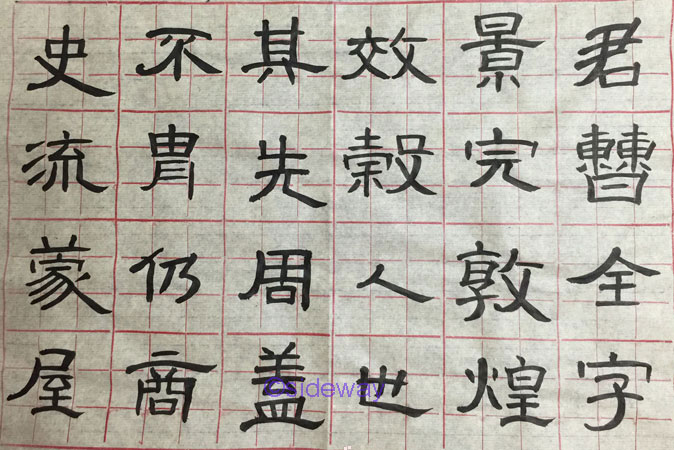 君曹全字
景完敦煌
效穀人也
其先周盖
不胄仍商
史流蒙屋
©sideway